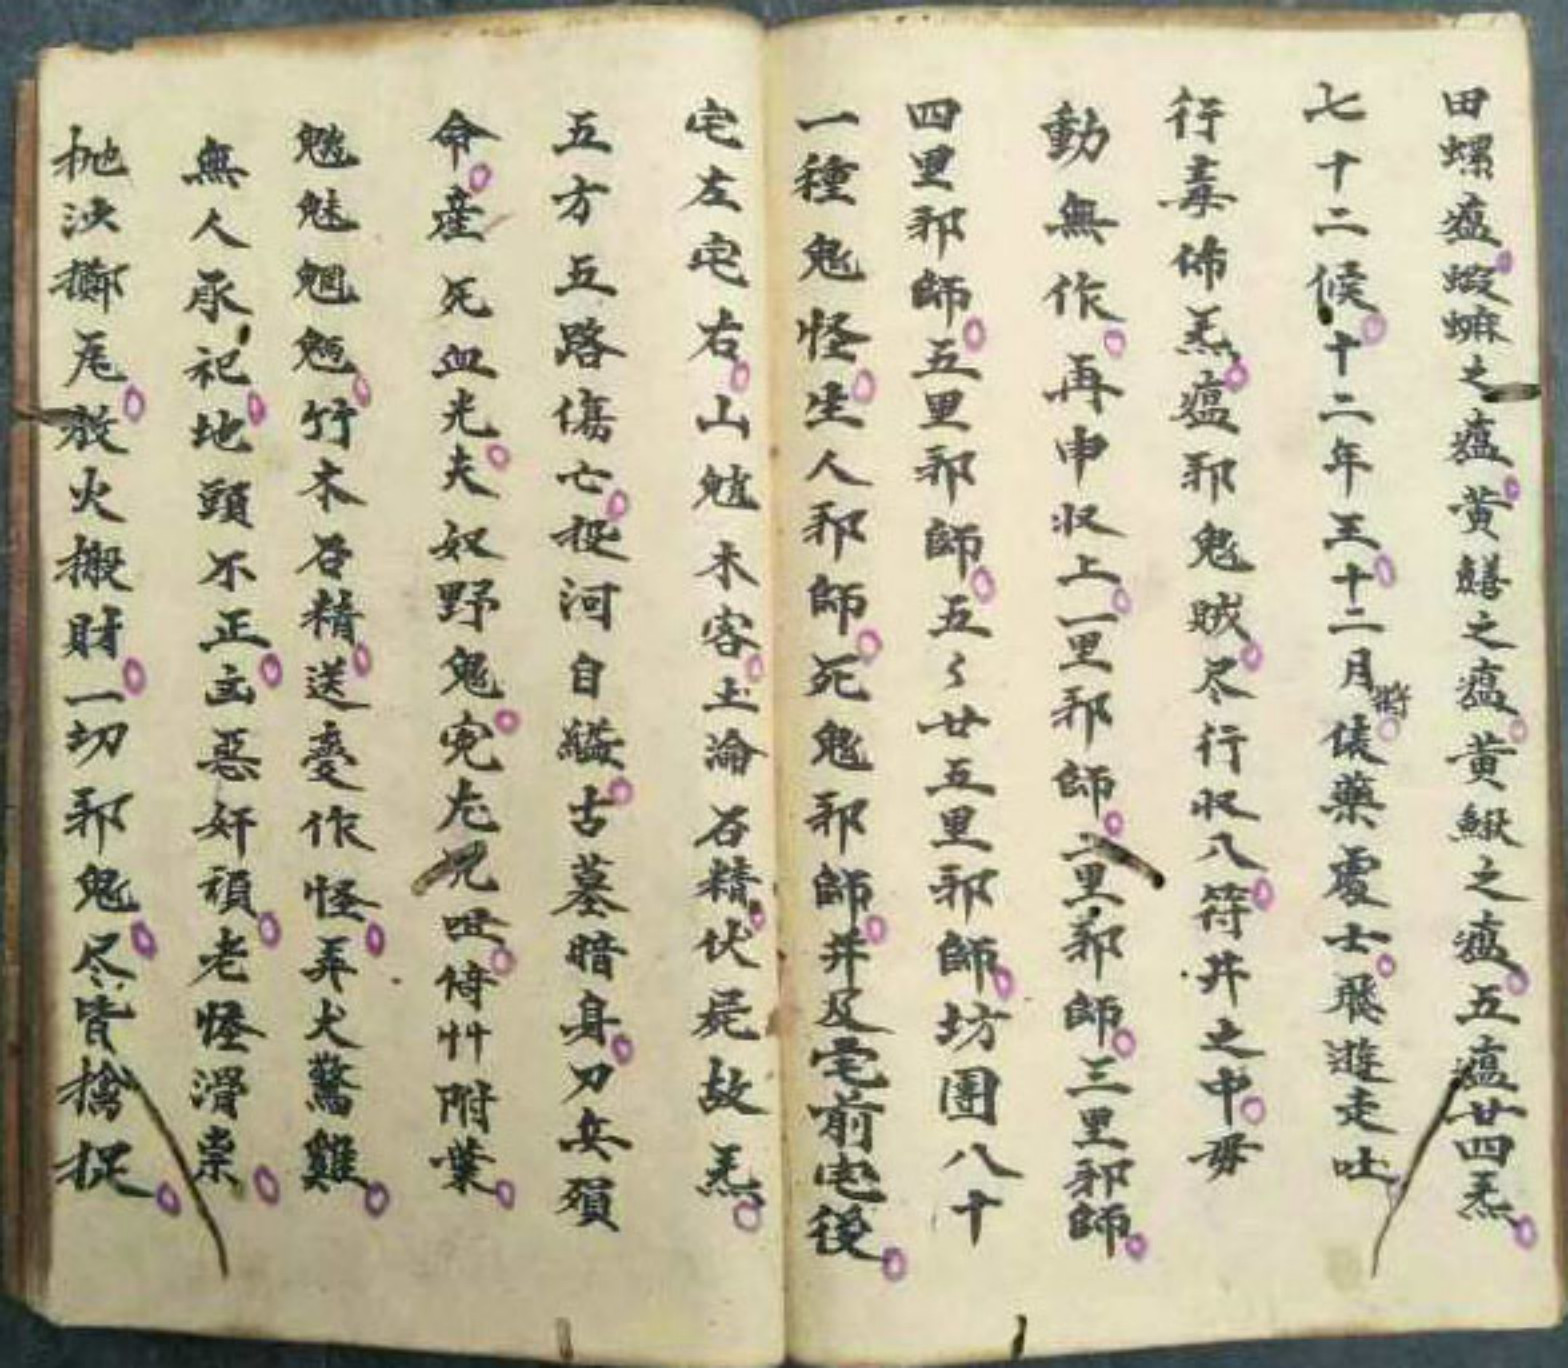 田螺瘟蝦蟆之瘟黄鱔之瘟黄鰍之瘟五瘟廿四炁
七十二候十二年王十二月將俵藥處士飛遊走吐
行毒佈炁瘟邪鬼賊尽行收入符井之中毋
動無作再申収上一里邪師二里邪師三里邪師
四里邪師五里邪師五〻廿五里邪師坊圍八十
一種鬼怪生人邪師死鬼邪師井及宅前宅後
宅左宅右山魈木客土淪石精伏屍故炁
五方五路傷亡投河自縊古墓暗身刀兵殞
命産死血光夫奴野鬼兜尨咒咀倚艸附葉
魑魅魍魎竹木石精送憂作怪弄犬驚雞
無人承祀地頭不正玄惡奸頑老怪滑祟
抛洪擲瓦放火搬財一切邪鬼尽皆擒捉